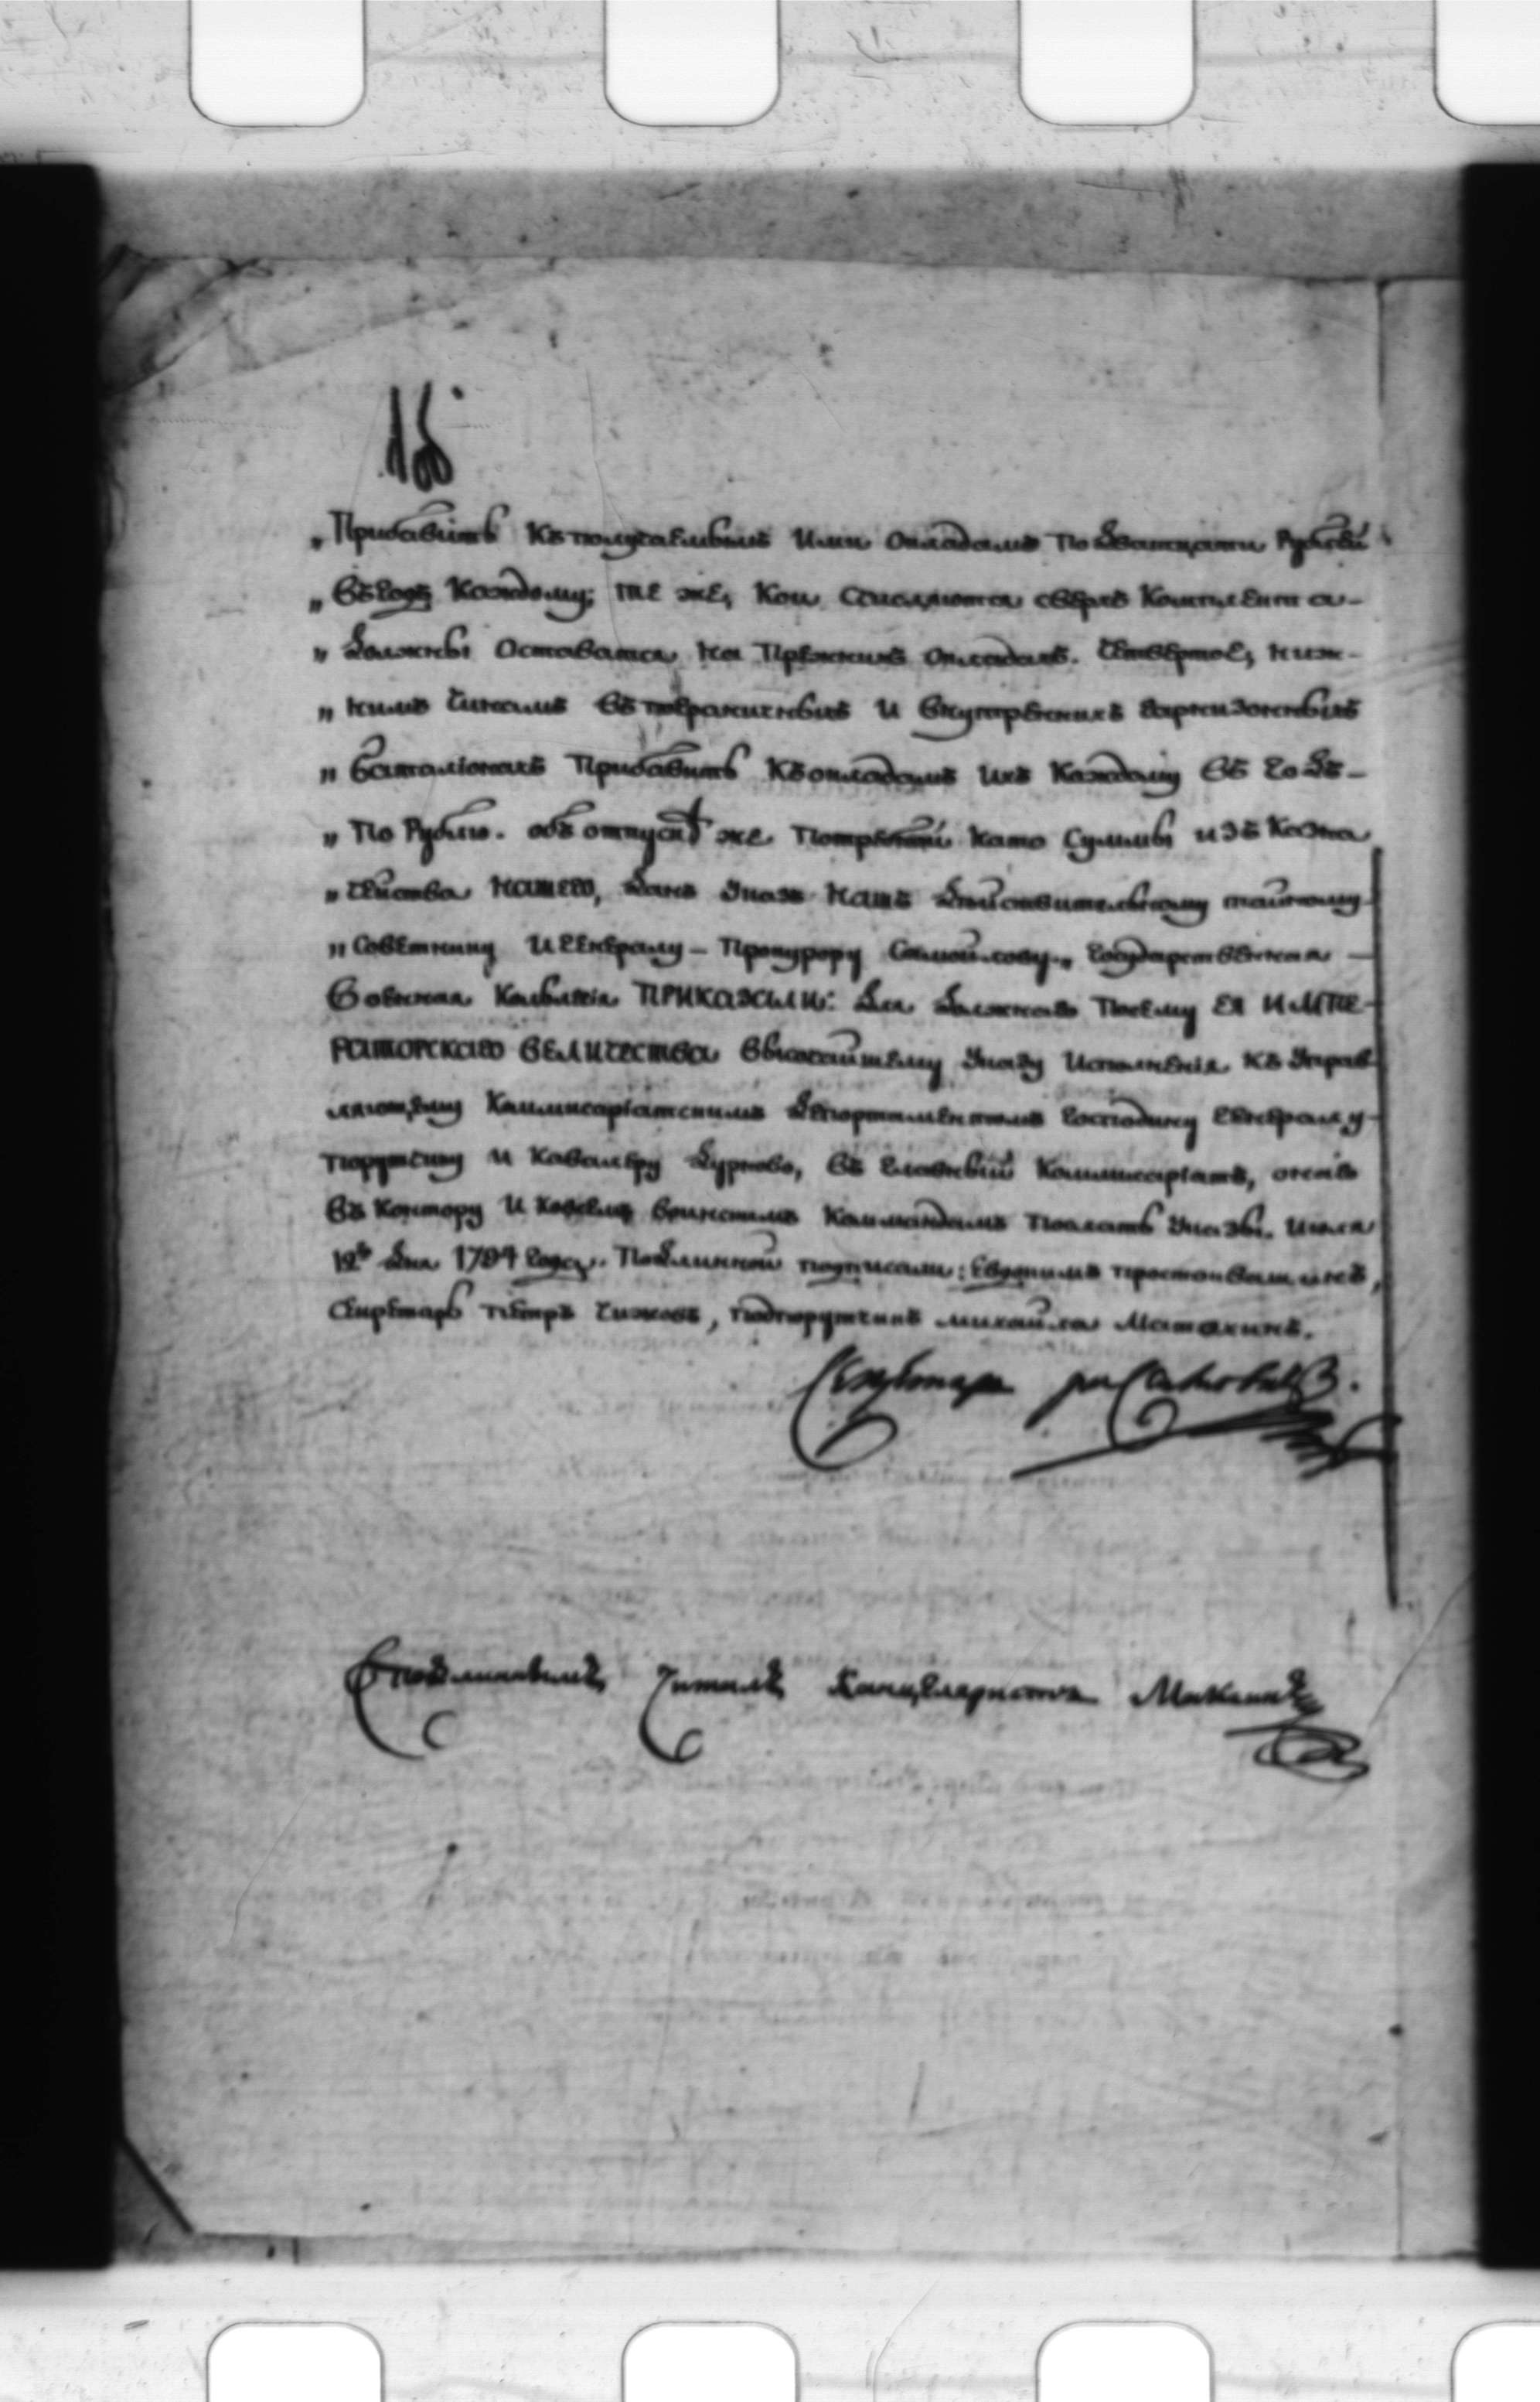 16
„Прибавить къ получаемымъ ими окладамъ по дватцати рублей
„въ годъ каждому; те же, кои счисляются сверхъ комплекта-
„должны оставатся на прежнихъ окладахъ. Четвертое, ниж-
„нимъ чинамъ въ пограничныхъ и внутреннихъ гарнизонныхъ
„баталіонахъ прибавить къ окладамъ ихъ каждому въ годъ-
„по рублю. объ отпускѣ же потребной на то суммы изъ казна
„чейства нашего, данъ указъ нашъ действительному тайному-
„советнику и генералу-прокурору Самойлову„ Государственная-
Военная Коллегія ПРИКАЗАЛИ: для должнаго по сему ЕЯ ИМПЕ-
РАТОРСКАГО ВЕЛИЧЕСТВА высочайшему указу исполненія къ управ
ляющему Коммисаріатскимъ департаментомъ господину генералу-
порутчику и кавалеру Дурново, въ главный Коммисаріатъ, онаго
въ контору и ко всемъ воинскимъ каммандамъ послать указы. Июля
12го дня 1794 года. Подлинной подписали: Евдокимъ Простоквашинъ,
Секретарь Петръ Чижовъ, подпорутчикъ Михайла Матохинъ.
Секретарь
Съ подлиннымъ читалъ Канцеляристъ